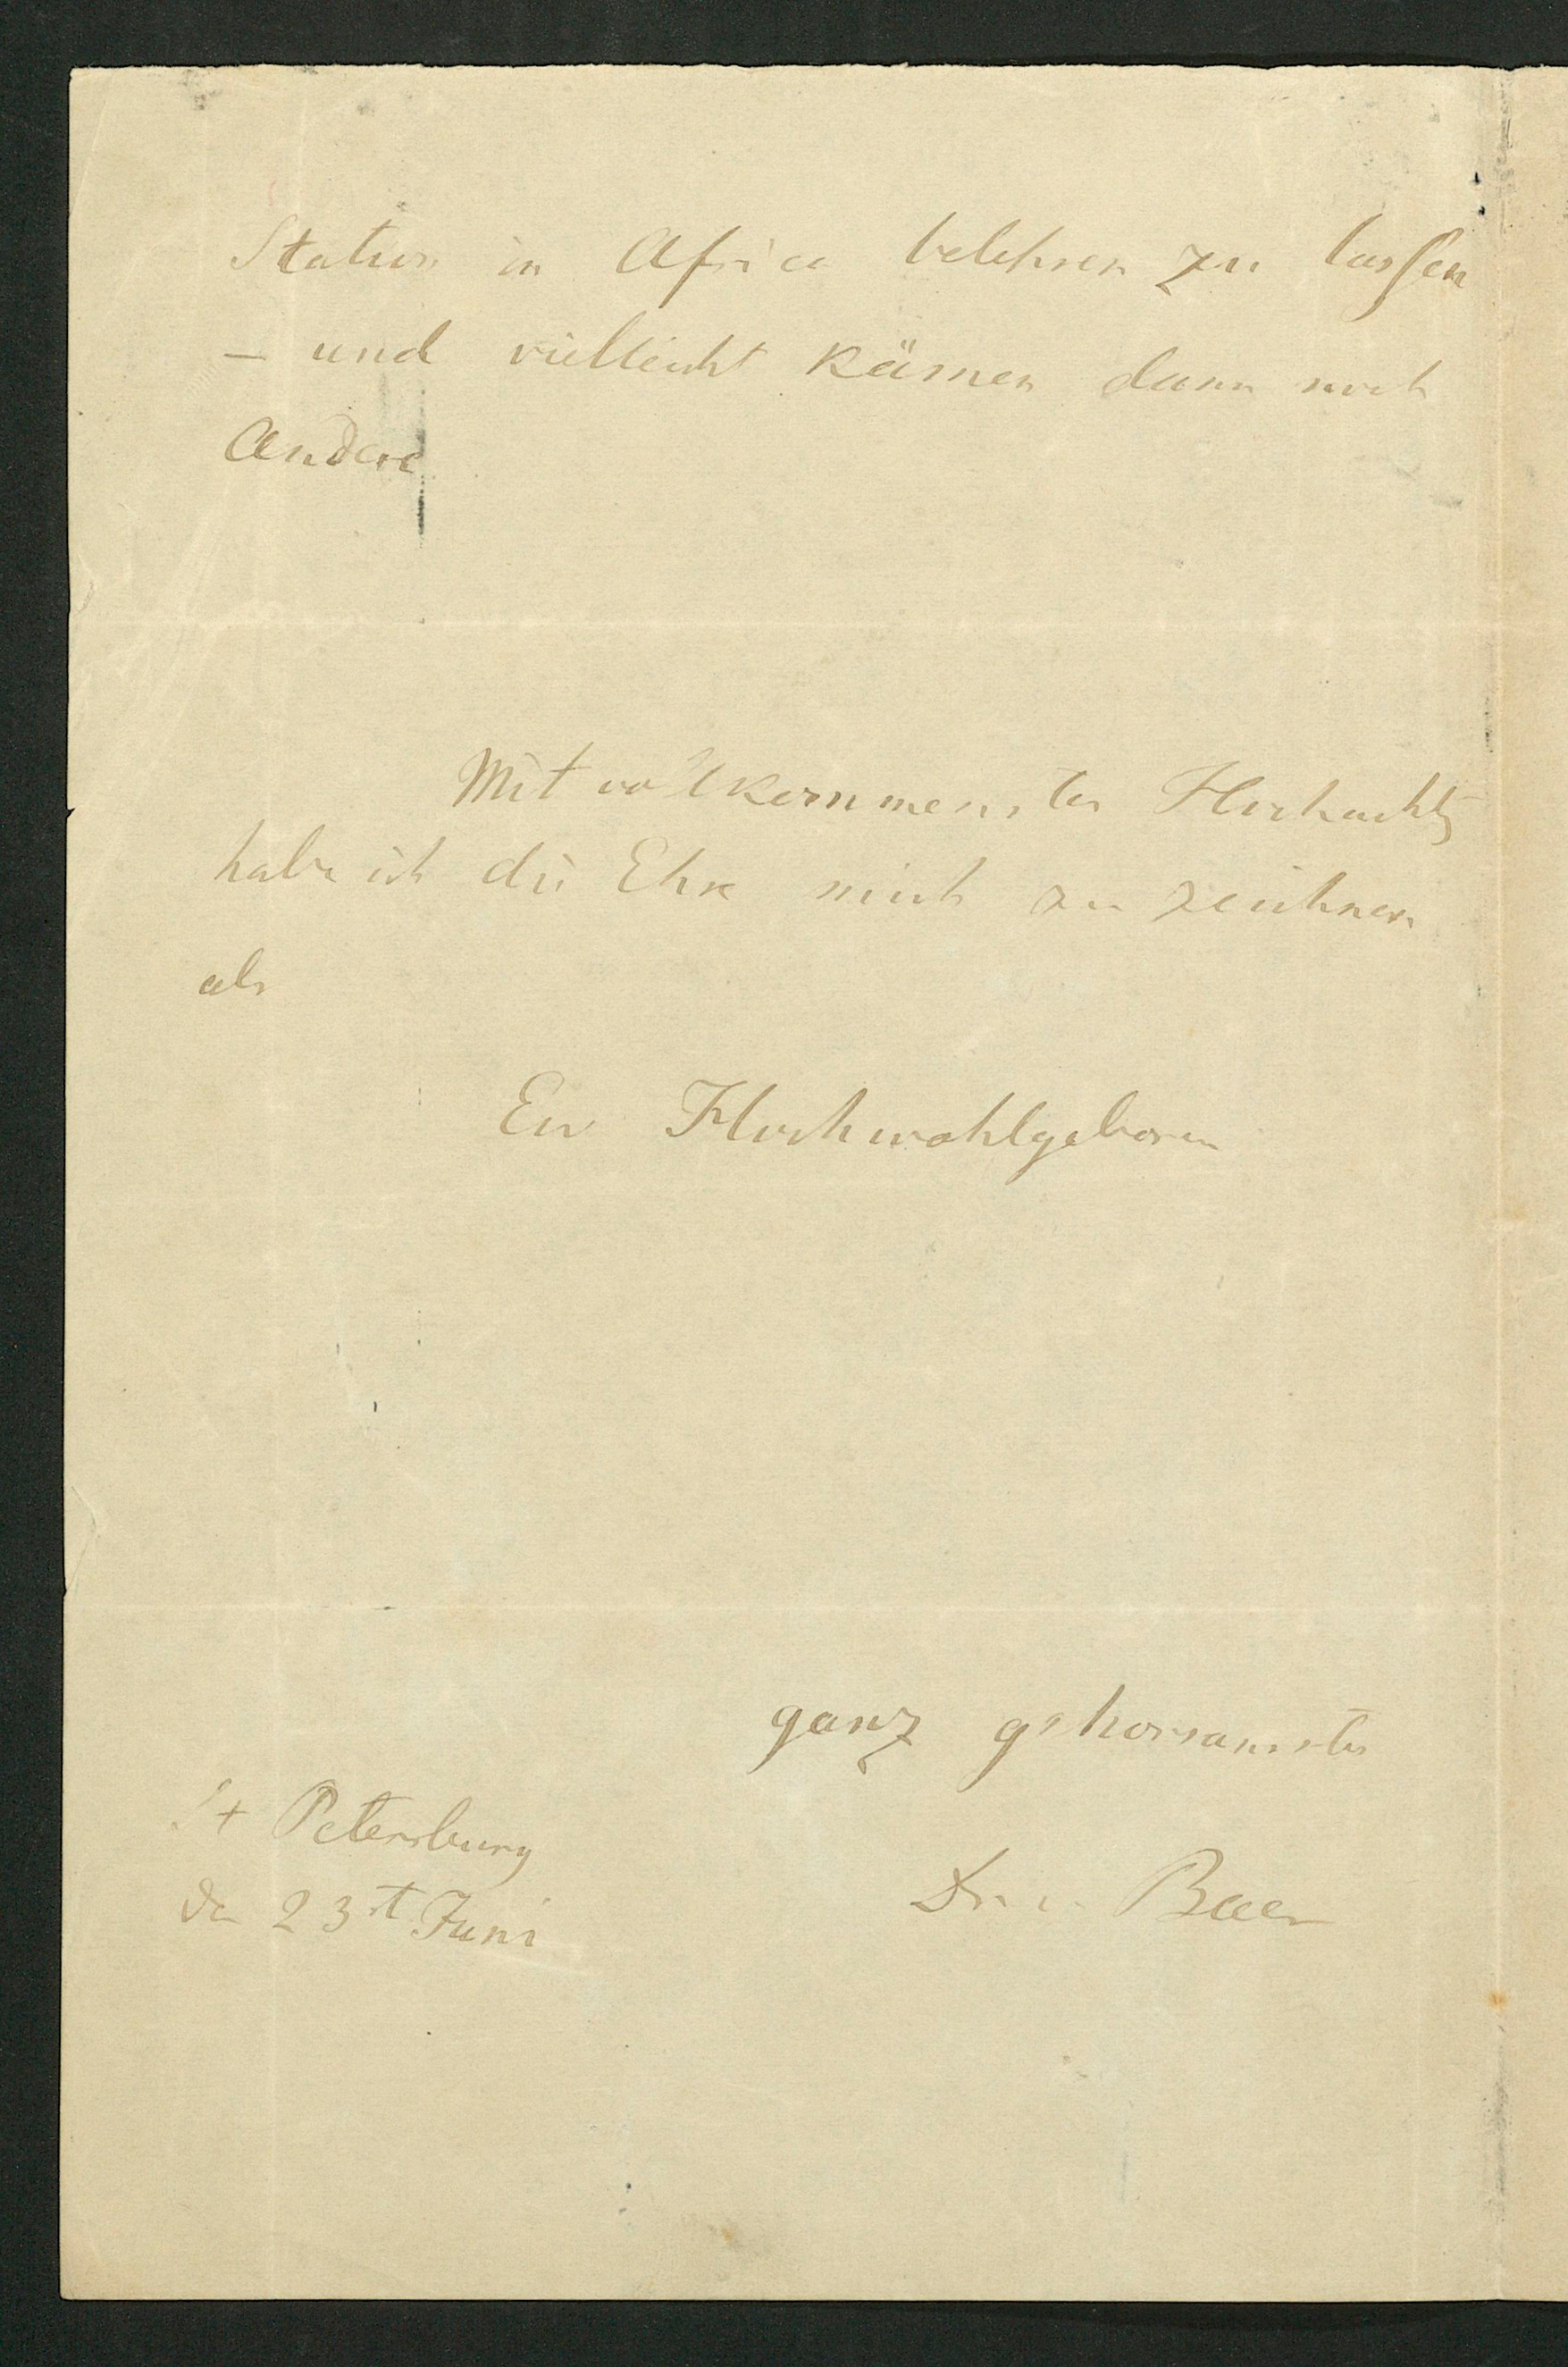 Station in Africa belehren zu lassen
– und vielleicht kämen dann noch
Andere
Mit vollkommenster Hochachtg
habe ich die Ehre mich zu zeichnen
als
Ew Hochwohlgeboren
ganz gehorsamster
St Petersburg
den 23st Juni
Dr. v. Baer